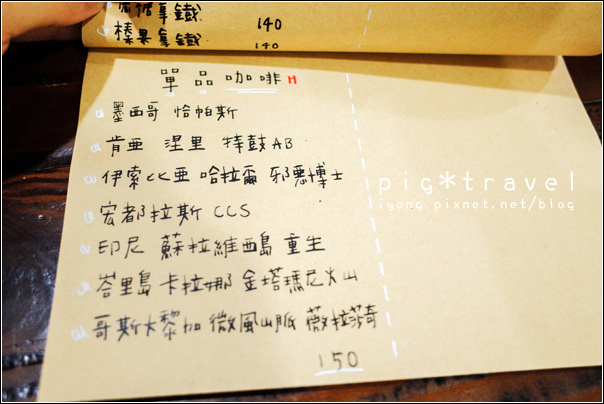 焦糖拿鐵 140
榛果拿鐵 140
單品咖啡 H
墨西哥 恰帕斯
肯亞 涅里 特鼓AB
伊索比亞 哈拉爾 邪惡博士
宏都拉斯 CCS
印尼 蘇拉維西島 重生
峇里島 卡拉娜 金塔瑪尼火山
哥斯大黎加 微風山脈 薇拉莎奇
150
pig*travel
iyong.pixnet.net/blog